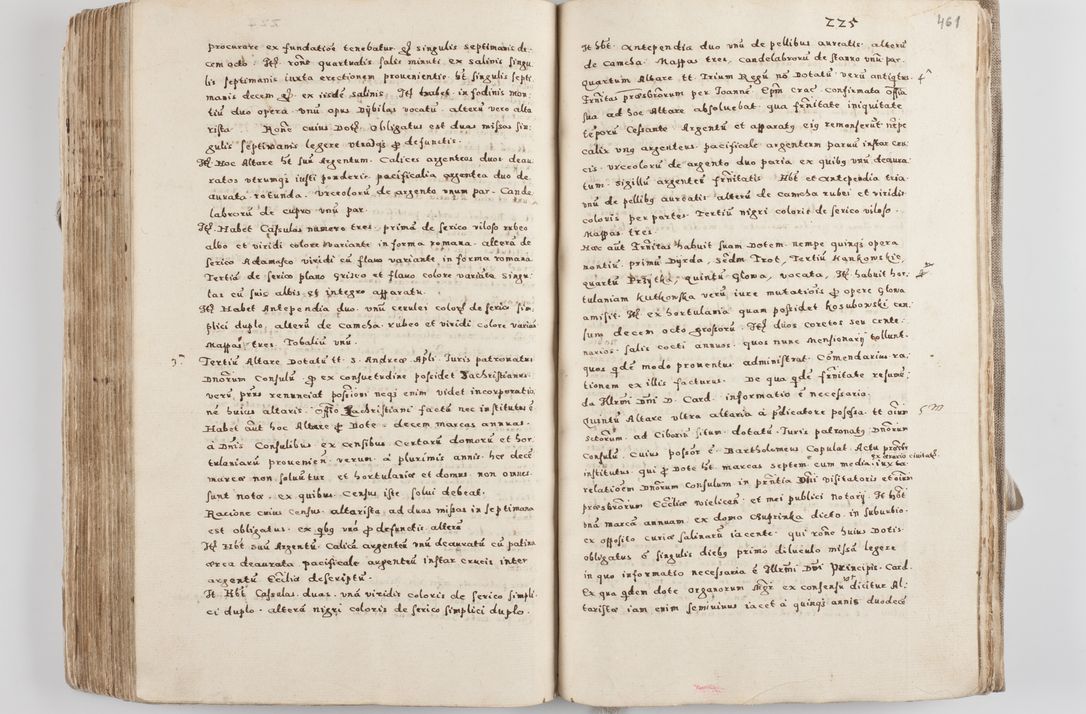 224
procurare ex fundatiōe tenebatur ꝙ singulis septimanis de:
cem octo. Itē rōne quartualis salis minuti ex salinis singu
lis septimanis iuxta erectionem provenientis ht singulis septi
manis decem ꝙ ex iisdē salinis. Itē habet in fodinis mon
tiū duo opera vnū opus Dÿbilas vocatū alterū vero alta
rista. Rōne cuius Dotis obligatus est duas missas sin:
gulis septimanis legere vtrasqȝ ꝓ defunctis.
Itē Hoc Altare ht suū Argentum. Calices argenteos duos deau
ratos vtrumqȝ iusti ponderis pacificalia argentea duo de
aurata rotunda. Vrceolorū de argento vnum par. Cande
labrorū de cupro vnū par
Itē Habet Casulas numero tres, primā de serico viloso rubeo
albo et viridi colore variante in forma romana. alterā de
serico Adamasco viridi cū flauo variante in forma romana
Tertiā de serico plano griseo et flauo colore variata. singu:
las cū suis albis et integro apparatu.
Itē Habet Antependia duo. vnū cerulei coloris de serico sim
plici duplo, alterū de camcha rubeo et viridi colore varias
Mappas tres. Tobaliū vnū.
3ᵐ Tertiū Altare Dotatū tt. S. Andreæ Apli Iuris patronatus
Dnōrum Consulū ꝓ ex consuetudine possidet Zachristianus
verū prius renunciat possioni neqȝ enim videt incorporatio
nē huius altaris. Offio Zachristiani factā nec institutus ē
Habet aūt hoc Altare ꝓ Dote. decem marcas annuas.
à Dnis Consulibus ex censibus certarū domorū et hor
tulaniarū provenien. verum à plurimis annis hæ decē
marcæ non soluūtur et hortulaniæ et domus non omnes
sunt notæ, ex quibus Census iste solui debeat.
Racione cuius census altarista ad duas missas in septimana
est obligatus ex qbȝ vnā ꝓ defunctis alterā
Itē Hēt suū Argentū. Calicē argenteū vnū deauratū cū patina
ærea deaurata pacificale argentū instar crucis inter
argentū Ecclīæ descriptū.
It Hēt Casulas duas. vnā viridis coloris de serico simpli
ci duplo. alterā nigri coloris de serico simplici duplo.
225 461
It hēt Antependia duo vnū de pellibus aureatis. alterū
de camcha. Mappas tres. candelabrorū de stanno vnū par.
4ᵐ Quartum Altare tt. Trium Regū nō Dotatū verū antiqtus
Frnitas præsbrorum per Ioannē Epm̄ Crac confirmata offia
sua ad hoc Altare absoluebat qua frnitate iniquitate
tēporū Cessante Argentū et apparatȝ eiȝ remanserūt nēpe
calix vnȝ argenteus pacificale argenteum paruū instar cru
cis. Vrceolorū de argento duo paria ex quibȝ vnū deaura
tum. sigillū argenteū frnitatis. Hēt et Antependia tria
vnū de pellibȝ aureatis alterū de camcha rubei et viridis
coloris per partes. Tertiū nigri coloris de serico viloso.
Mappas tres.
Hæc aūt Frnitas habuit suam Dotem. nempe quinqȝ opera
montiū. primū Dyrda, Scdm Trot, Tertiū Hankowskie,
quartū Przytka, quintū Glowa, vocata, Itē habuit hor.
tulaniam Kutkowska verū iure mutatiōis ꝓ opere Glowa
amisit. Itē ex hortulania quam possidet Kosubowski cen
sum decem octo grossorū. Itē duos coretos seu cente
narios salis cocti annuos quos nunc Mensionarij tollunt.
quos qdē modo proventus administrat Comendarius ra
tionem ex illis facturus. De qua qdē frnitate resumē.
da Illrmi Dm̄i D. Card. informatio ē necessaria.
5ᵐ Quintū Altare vltra altaria à pdicatore possessa. tt oīum
sctorum. ad Ciboriū situm. dotatū. Iuris patronatȝ Dnorum
Consulū. Cuius possor ē Bartholomeus Copulat. Actu præsbr
institutus qui ꝓ Dote ht marcas septem cum media. iuxta ex ærario ciuitatis.
relatiōem Dnorum Consulum in prntia Dm̄i visitatoris et oīum
præsbrorum Ecclīæ Wielicen. et mei publici Notarij. It hēt
vnā marcā annuam ex domo Csuprinka dicto in suburbio
ex opposito curiæ salinarū iacente. qui rōne huius Dotis
obligatus ē singulis diebȝ primo diluculo missā legere
in quo informatio necessaria ē Illrmi Dm̄i Principis Card.
Ex qua qdem dote organorum Mgr ex consensu vt dicitur Al:
taristæ iam enim semiuiuus iacet à quinqȝ annis duodecē